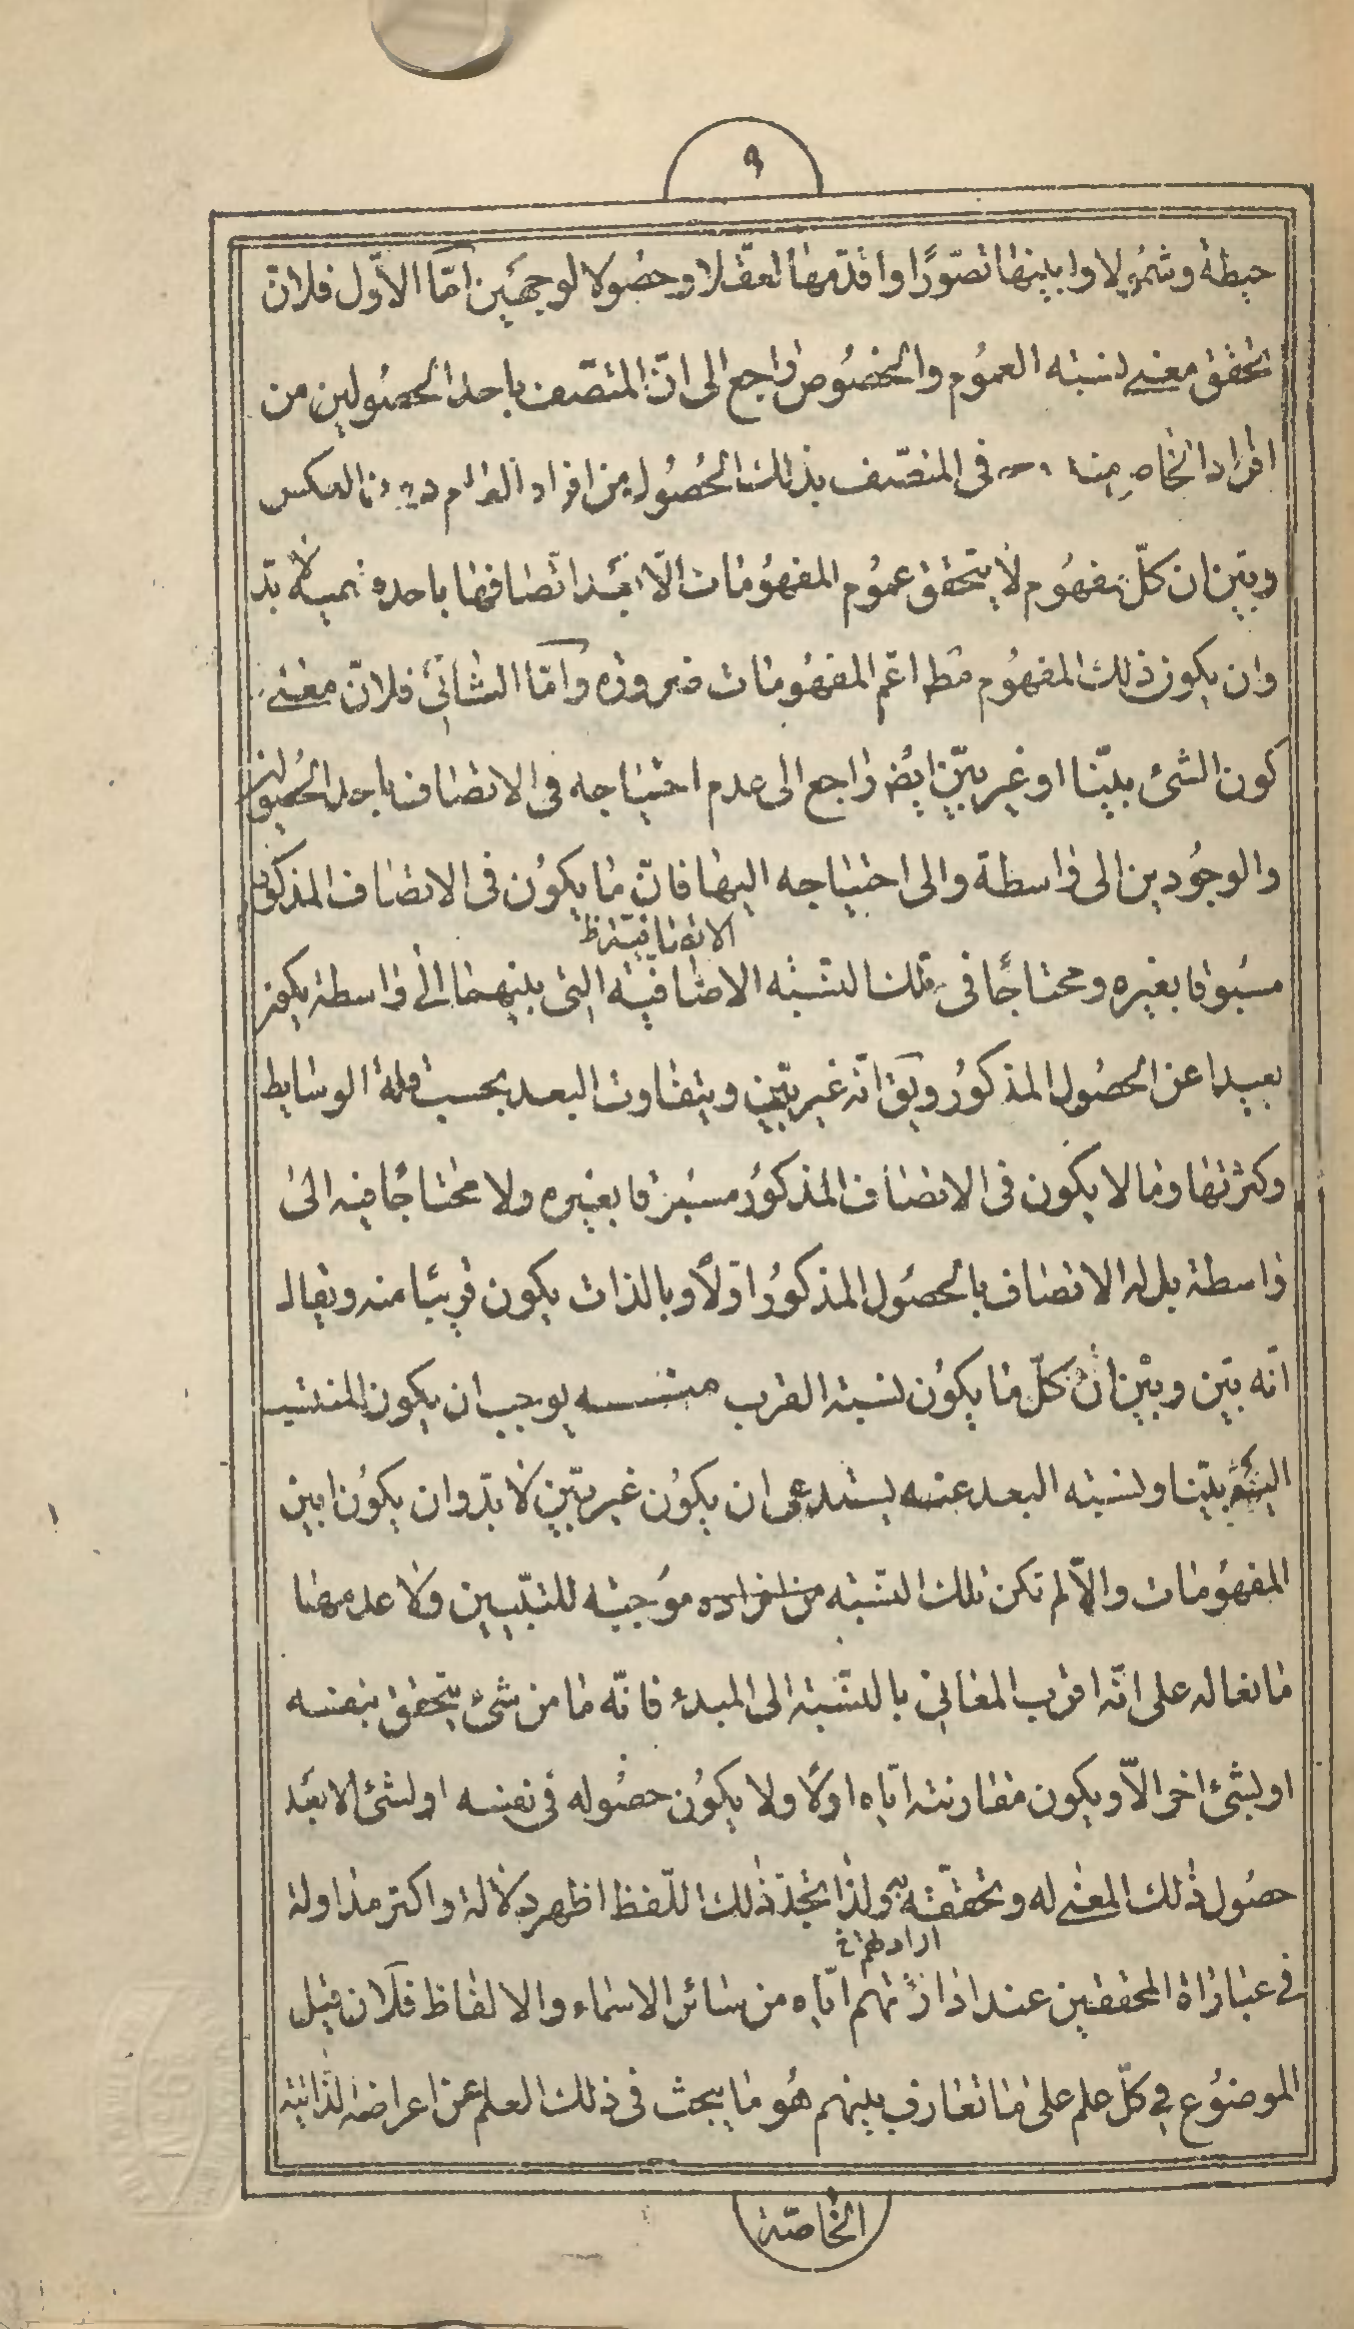 ٩
حيطة وشمولا وابينها تصورًا واقدمها تعقلا وحصولا لوجهين امّا الاوّل فلانّ
تحقق معنى نسبته العموم والخصوص راجع الى انّ المتصّف باحد الحصولين من
افراد الخاص منها فى المتصّف بذلك الحصول من افراد العام دون العكس
وبيّن ان كلّ مفهوم لا يتحقق عموم المفهومات الّا بعد اتصافها باحده لا بدّ
وان يكون ذلك المفهوم مط اعّم المفهومات ضرورة وامّا الثانى فلانّ معنى
كون الشئ بيّنا او غير بيّن ايض راجع الى عدم احتياجه فى الاتصاف باحد الحصولين
والوجودين الى واسطة والى احتياجه اليها فانّ ما يكون فى الاتصاف المذكور
الاتصافيّة ظ
مسبوقا بغيره ومحتاجًا فى تلك النسّبة الاضافيّة التى بينهما الى واسطة يكون
بعيدا عن الحصول المذكور ويق انّه غير بيّن ويتفاوت البعد بحسب قلة الوسايط
وكثرتها وما لا يكون فى الاتصاف المذكور مسبوقا بغيره ولا محتاجًا فيه الى
واسطة بل له الاتصاف بالحصول المذكور اوّلًا وبالذات يكون قريبًا منه ويقال
انّه بيّن وبيّن انّ كلّ ما يكون نسبة القرب منه يوجب ان يكون المنتسب
بيّنا ونسبته البعد عنه يستدعى ان يكون غير بيّن لا بدّ وان يكون ابين
المفهومات والّا لم تكن تلك النسّبة من افراده موجبة للتبيين ولا عدمها
ما نعا له على انّه اقرب المعانى بالنسّبة الى المبدء فانّه ما من شئ يتحقق بنفسه
او لشئ اخر الّا ويكون مقارنته ايّاه اولًا ولا يكون حصوله فى نفسه او لشئ الا بعد
حصول ذلك المعنى له وتحققه به ولذا تجد ذلك اللّفظ اظهر دلالة واكثر مداولة
ارادتهم خ
فى عبارات المحققين عند ايّاه من سائر الاسماء والالفاظ فلان قيل
الموضوع فى كلّ علم على ما تعارف بينهم هو ما يبحث فى ذلك العلم عن اعراضه الذاتية
الخاصّة